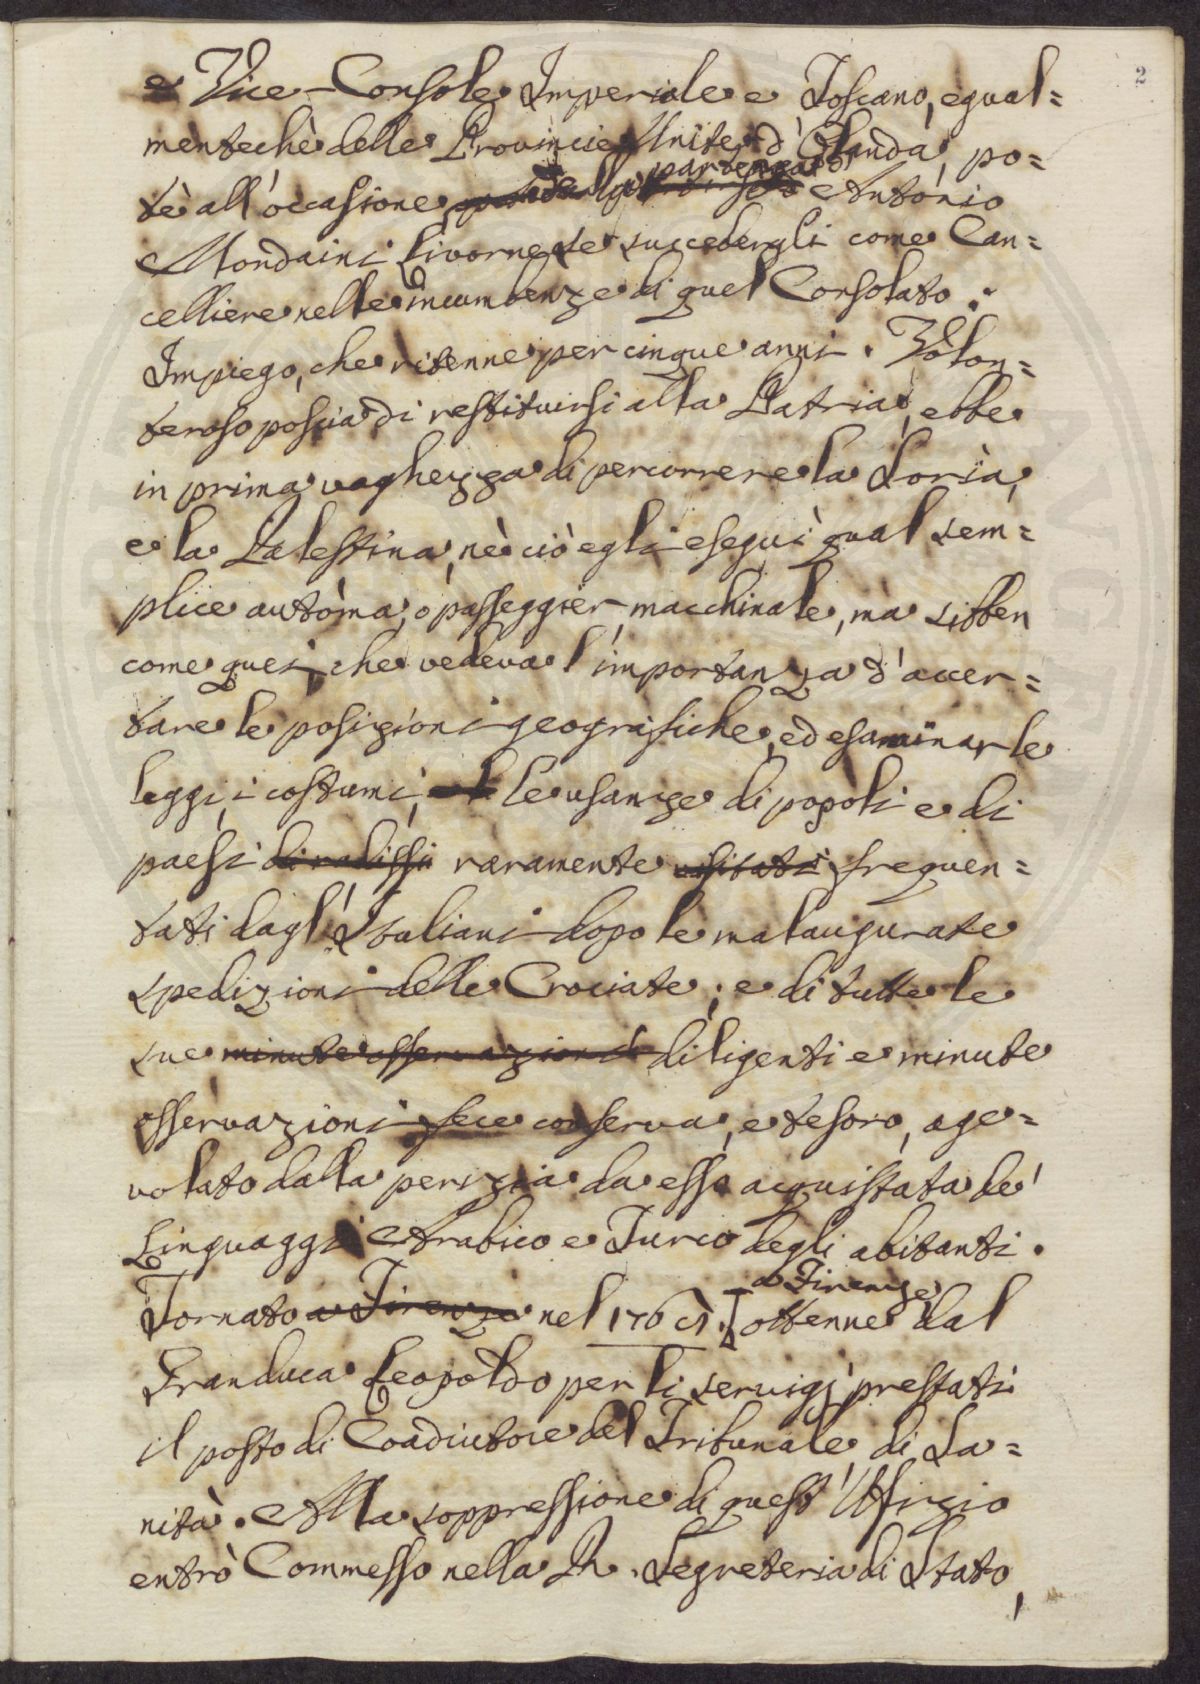 2
e Vice-Console Imperiale e Toscano, egual=
mentechè delle Provincie Unite d'Olanda, po=
partenza di
tè all'occasione della Antonio
Mondaini Livornese succedergli come Can=
celliere nelle incumbenze di quel Consolato:
Impiego, che ritenne per cinque anni. Volon=
teroso poscia di restituirsi alla Patria, ebbe
in prima vaghezza di percorrere la Soria,
e la Palestina, nè ciò egli eseguì qual sem=
plice autòma, ò passeggier macchinale, mà sibben
come quei, che vedeva l'importanza d'accer=
tare le posizioni geografiche, ed esaminar le
leggi, i costumi, le usanze di popoli e di
paesi di radissi raramente visitati frequen=
tati dagl'Italiani dopo le malaugurate
spedizioni delle Crociate; e di tutte le
sue minute osservazioni diligenti e minute
osservazioni fece conserva, e tesoro, age=
volato dalla perizia da esso acquistata de'
Linguaggi Arabico e Turco degli abitanti.
a Firenze
Tornato a Firenze nel 1767. [ottenne dal
Granduca Leopoldo per li servigj prestati
il posto di Coadiutore del Tribunale di Sa=
nità. Alla soppressione di quest'Uffizio
entrò Commesso nella R. Segreteria di Stato,